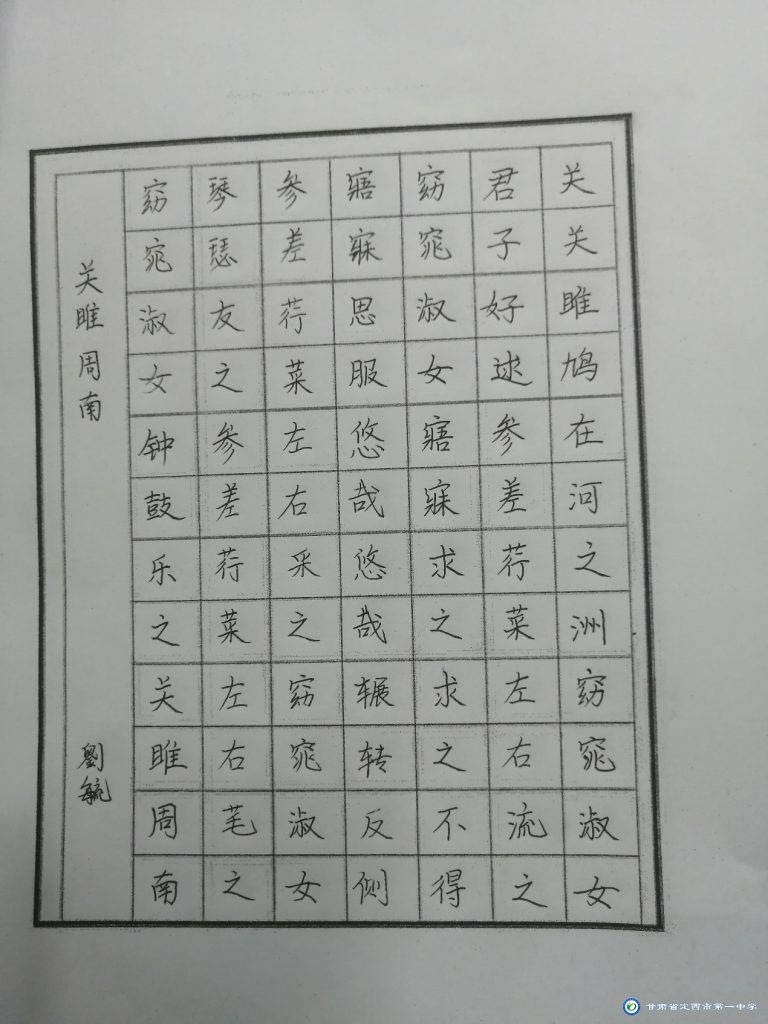 关关雎鸠在河之洲窈窕淑女
君子好逑参差荇菜左右流之
窈窕淑女寤寐求之求之不得
寤寐思服悠哉悠哉辗转反侧
参差荇菜左右采之窈窕淑女
琴瑟友之参差荇菜左右芼之
窈窕淑女钟鼓乐之关雎周南
关雎 周南 劉毓
甘肃省定西市第一中学